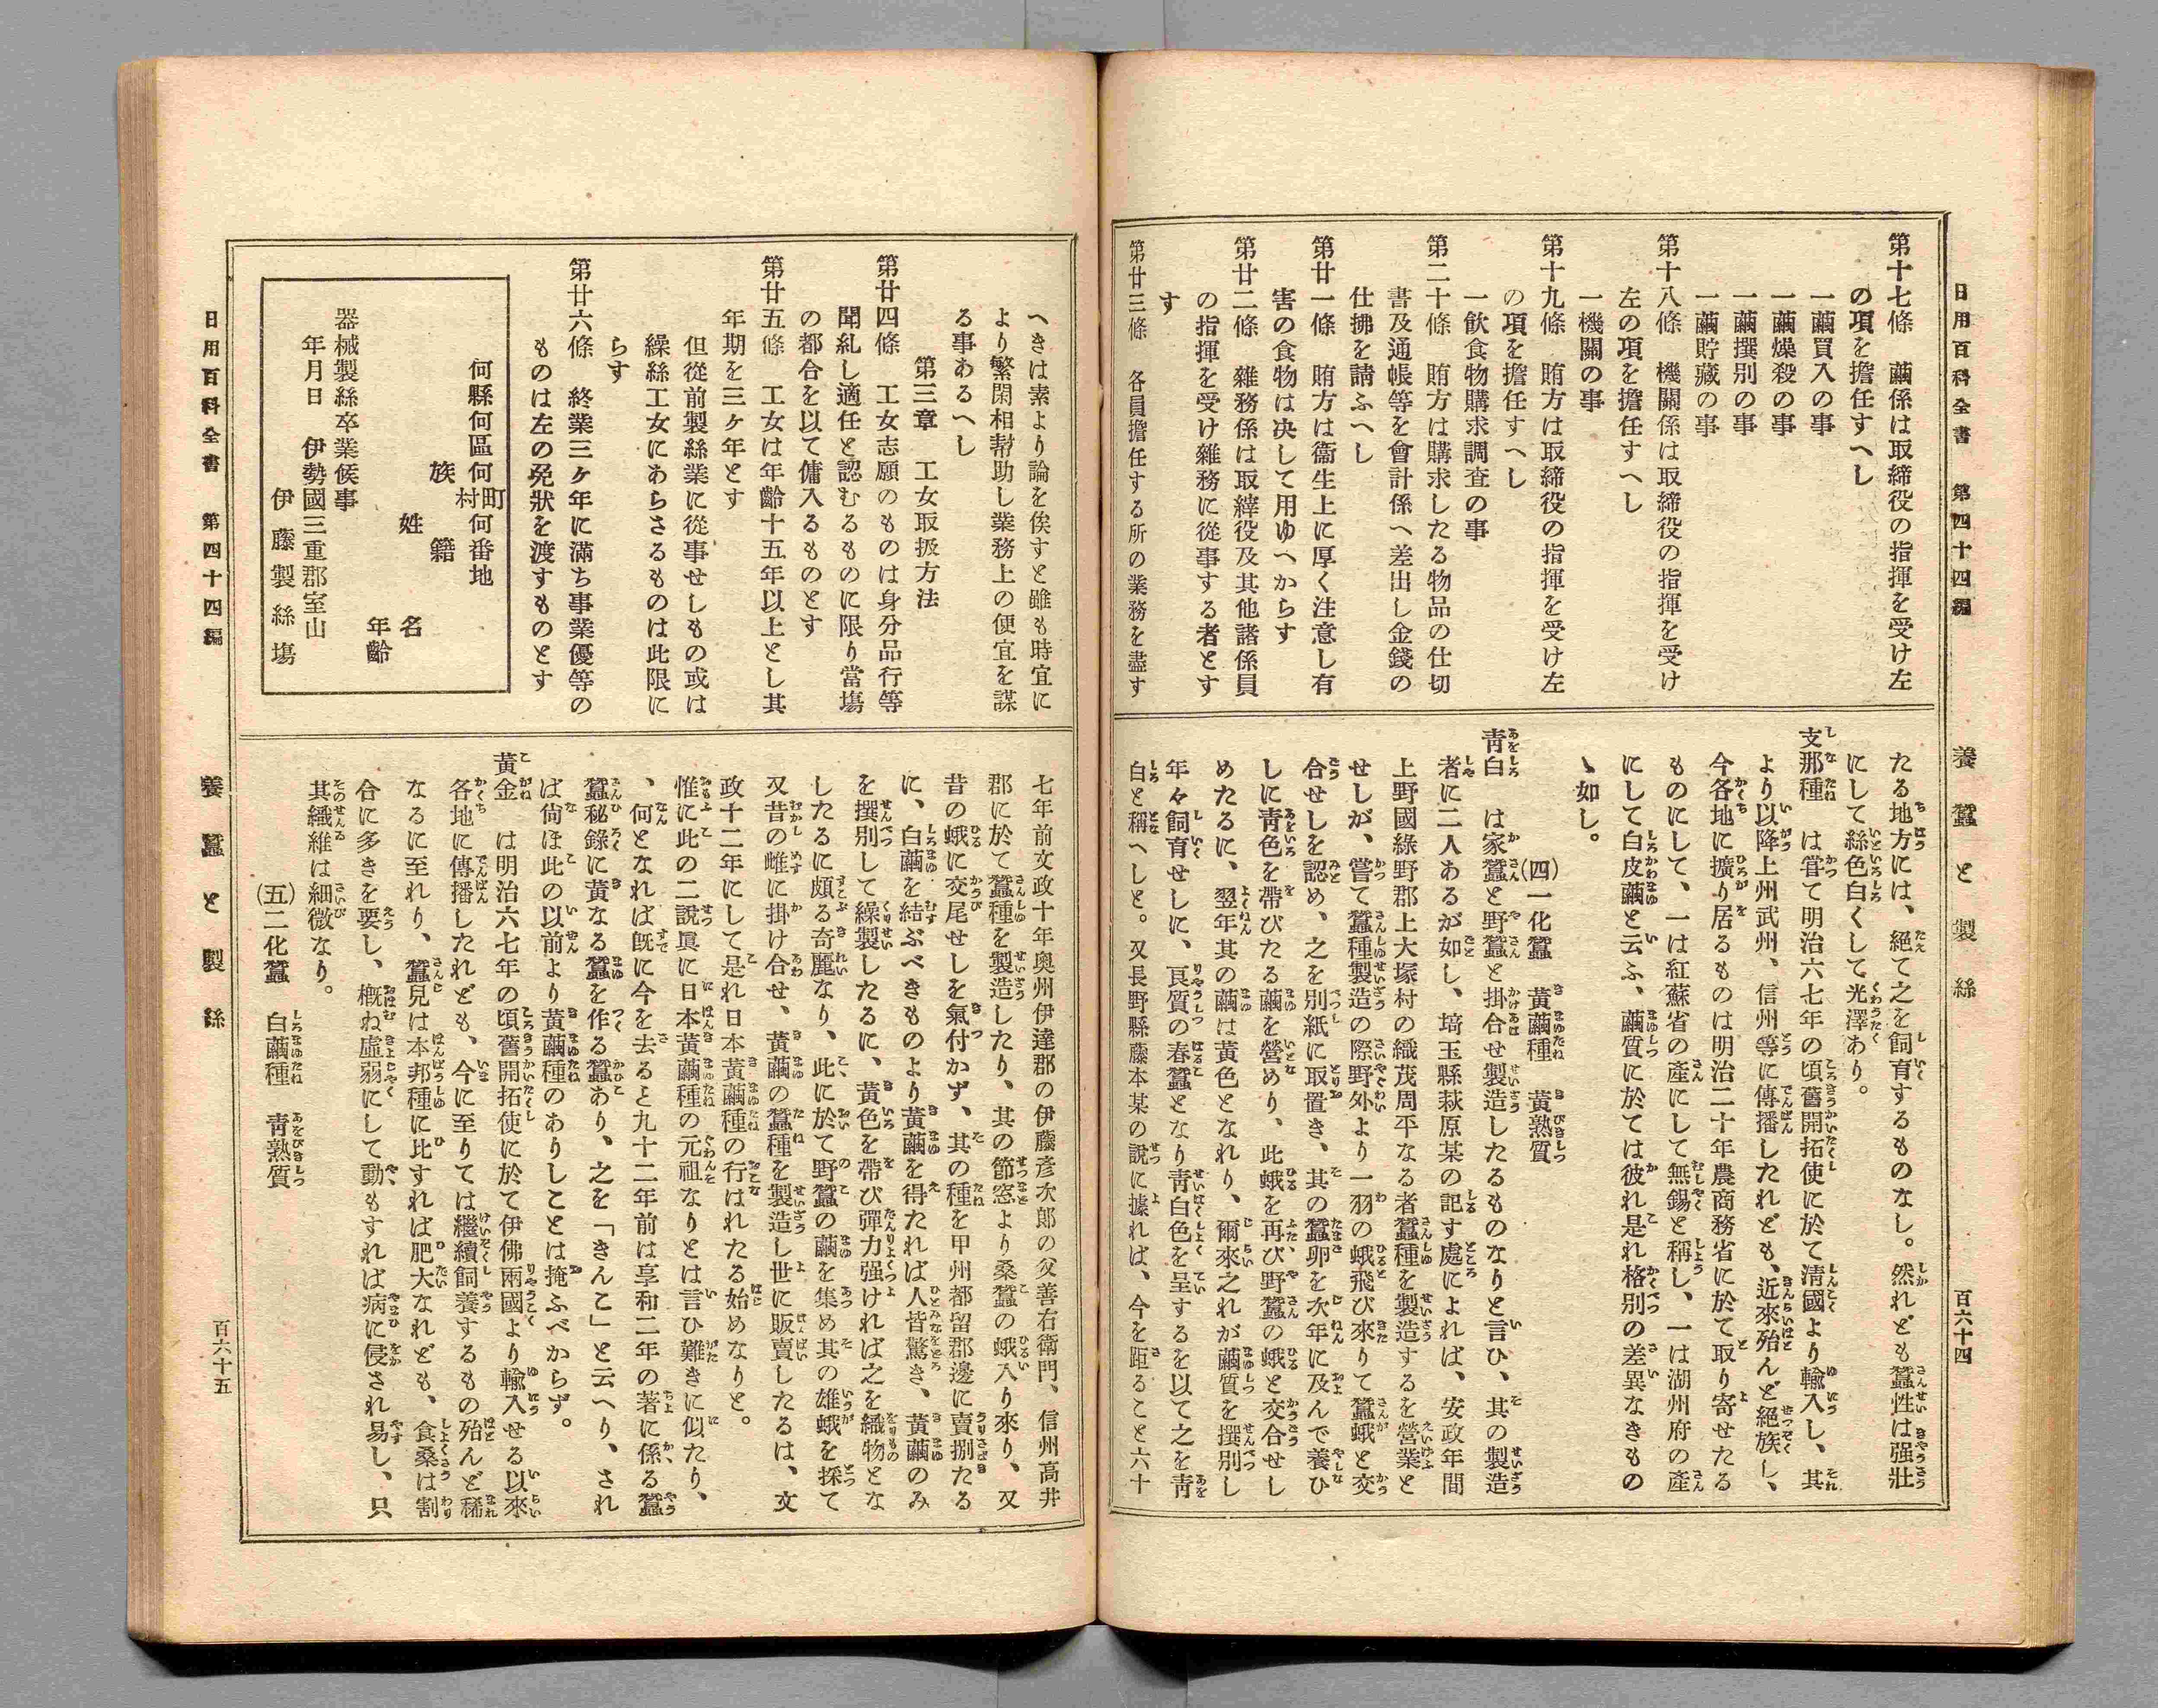 日用百科全書　第四十四編
養蠶と製絲
百六十四
第十七條　繭係は取締役の指揮を受け左
の項を擔任すへし
一繭買入の事
一繭燥殺の事
一繭撰別の事
一繭貯藏の事
第十八條　機關係は取締役の指揮を受け
左の項を擔任すへし
一機關の事
第十九條　賄方は取締役の指揮を受け左
の項を擔任すへし
一飮食物購求調査の事
第二十條　賄方は購求したる物品の仕切
書及通帳等を會計係へ差出し金錢の
仕拂を請ふへし
第廿一條　賄方は衞生上に厚く注意し有
害の食物は决して用ゆへからす
第廿二條　雜務係は取締役及其他諸係員
の指揮を受け雜務に從事する者とす
す
第廿三條　各員擔任する所の業務を盡す
たる地方には、絕て之を飼育するものなし。然れども蠶性は强壯
にして絲色白くして光澤あり。
支那種　は甞て明治六七年の頃舊開拓使に於て淸國より輸入し、其
より以降上州武州、信州等に傳播したれども、近來殆んど絕族し、
今各地に擴り居るものは明治二十年農商務省に於て取り寄せたる
ものにして、一は紅蘇省の產にして無錫と稱し、一は湖州府の產
にして白皮繭と云ふ、繭質に於ては彼れ是れ格別の差異なきもの
ゝ如し。
(四)一化蠶　黃繭種　黃熟質
靑白　は家蠶と野蠶と掛合せ製造したるものなりと言ひ、其の製造
者に二人あるが如し、埼玉縣萩原某の記す處によれば、安政年間
上野國綠野郡上大塚村の織茂周平なる者蠶種を製造するを營業と
せしが、嘗て蠶種製造の際野外より一羽の蛾飛び來りて蠶蛾と交
合せしを認め、之を別紙に取置き、其の蠶卵を次年に及んで養ひ
しに靑色を帶びたる繭を營めり、此蛾を再び野蠶の蛾と交合せし
めたるに、翌年其の繭は黃色となれり、爾來之れが繭質を撰別し
年々飼育せしに、良質の春蠶となり靑白色を呈するを以て之を靑
白と稱へしと。又長野縣藤本某の說に據れば、今を距ること六十
へきは素より論を俟すと雖も時宜に
より繁閑相幇助し業務上の便宜を謀
る事あるへし
第三章　工女取扱方法
第廿四條　工女志願のものは身分品行等
聞糺し適任と認むるものに限り當塲
の都合を以て傭入るものとす
第廿五條　工女は年齡十五年以上とし其
年期を三ヶ年とす
但從前製絲業に從事せしもの或は
繰絲工女にあらさるものは此限に
らす
第廿六條　終業三ヶ年に滿ち事業優等の
ものは左の免狀を渡すものとす
何縣何區何町村何番地
族　籍
姓　名
年齡
器械製絲卒業候事
年月日　伊勢國三重郡室山
伊藤製絲塲
七年前文政十年奧州伊達郡の伊藤彥次郎の父善右衛門、信州高井
郡に於て蠶種を製造したり、其の節窓より桑蠶の蛾入り來り、又
昔の蛾に交尾せしを氣付かず、其の種を甲州都留郡邊に賣捌たる
に、白繭を結ぶべきものより黃繭を得たれば人皆驚き、黃繭のみ
を撰別して繰製したるに、黃色を帶び彈力强ければ之を織物とな
したるに頗る奇麗なり、此に於て野蠶の繭を集め其の雄蛾を採て
又昔の雌に掛け合せ、黃繭の蠶種を製造し世に販賣したるは、文
政十二年にして是れ日本黃繭種の行はれたる始めなりと。
惟に此の二說眞に日本黃繭種の元祖なりとは言ひ難きに似たり、
何となれば旣に今を去ると九十二年前は享和二年の著に係る蠶
、蠶秘錄に黃なる蠶を作る蠶あり、之を「きんこ」と云へり、され
ば尙ほ此の以前より黃繭種のありしことは掩ふべからず。
黃金　は明治六七年の頃舊開拓使に於て伊佛兩國より輸入せる以來
各地に傳播したれども、今に至りては繼續飼養するもの殆んど稀
なるに至れり、蠶兒は本邦種に比すれば肥大なれども、食桑は割
合に多きを要し、槪ね虛弱にして動もすれば病に侵され易し、只
其纖維は細微なり。
(五)二化蠶　白繭種　靑熟質
日用百科全書　第四十四編
養蠶と製絲
百六十五